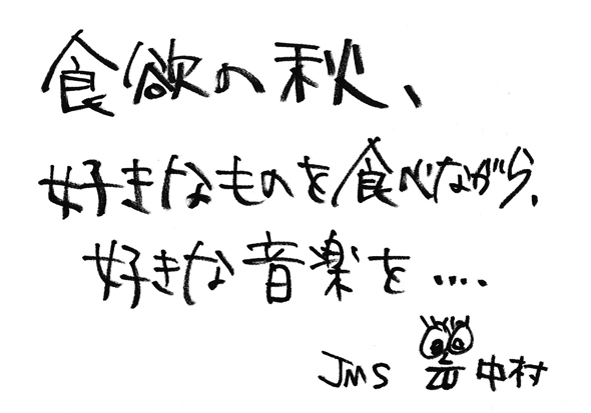 食欲の秋、
好きなものを食べながら、
好きな音楽を‥‥
JMS 中村